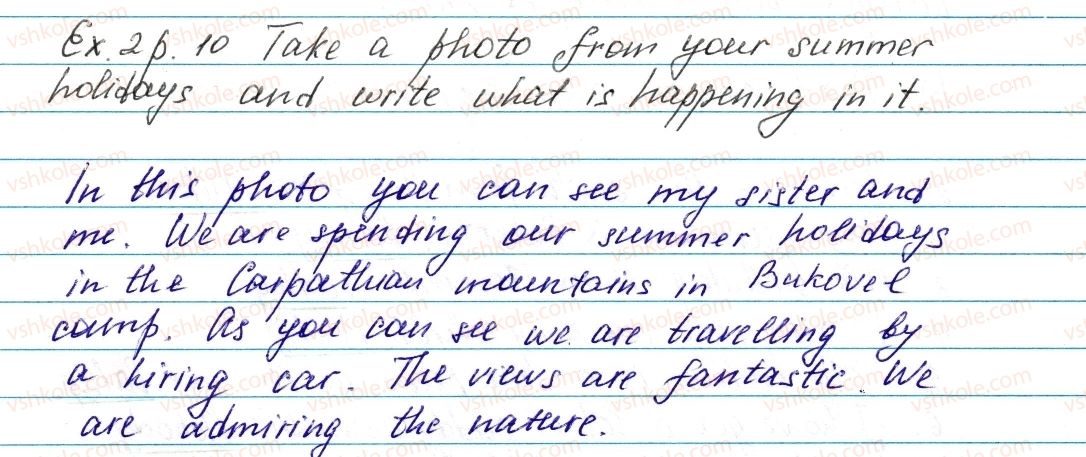 Ex. 2 p. 10 Take a photo from your summer
holidays and write what is happening in it.
In this photo you can see my sister and
me. We are spending our summer holidays
in the Carpathian mountains in Bukovel
camp. As you can see we are travelling by
a hiring car. The views are fantastic. We
are admiring the nature.